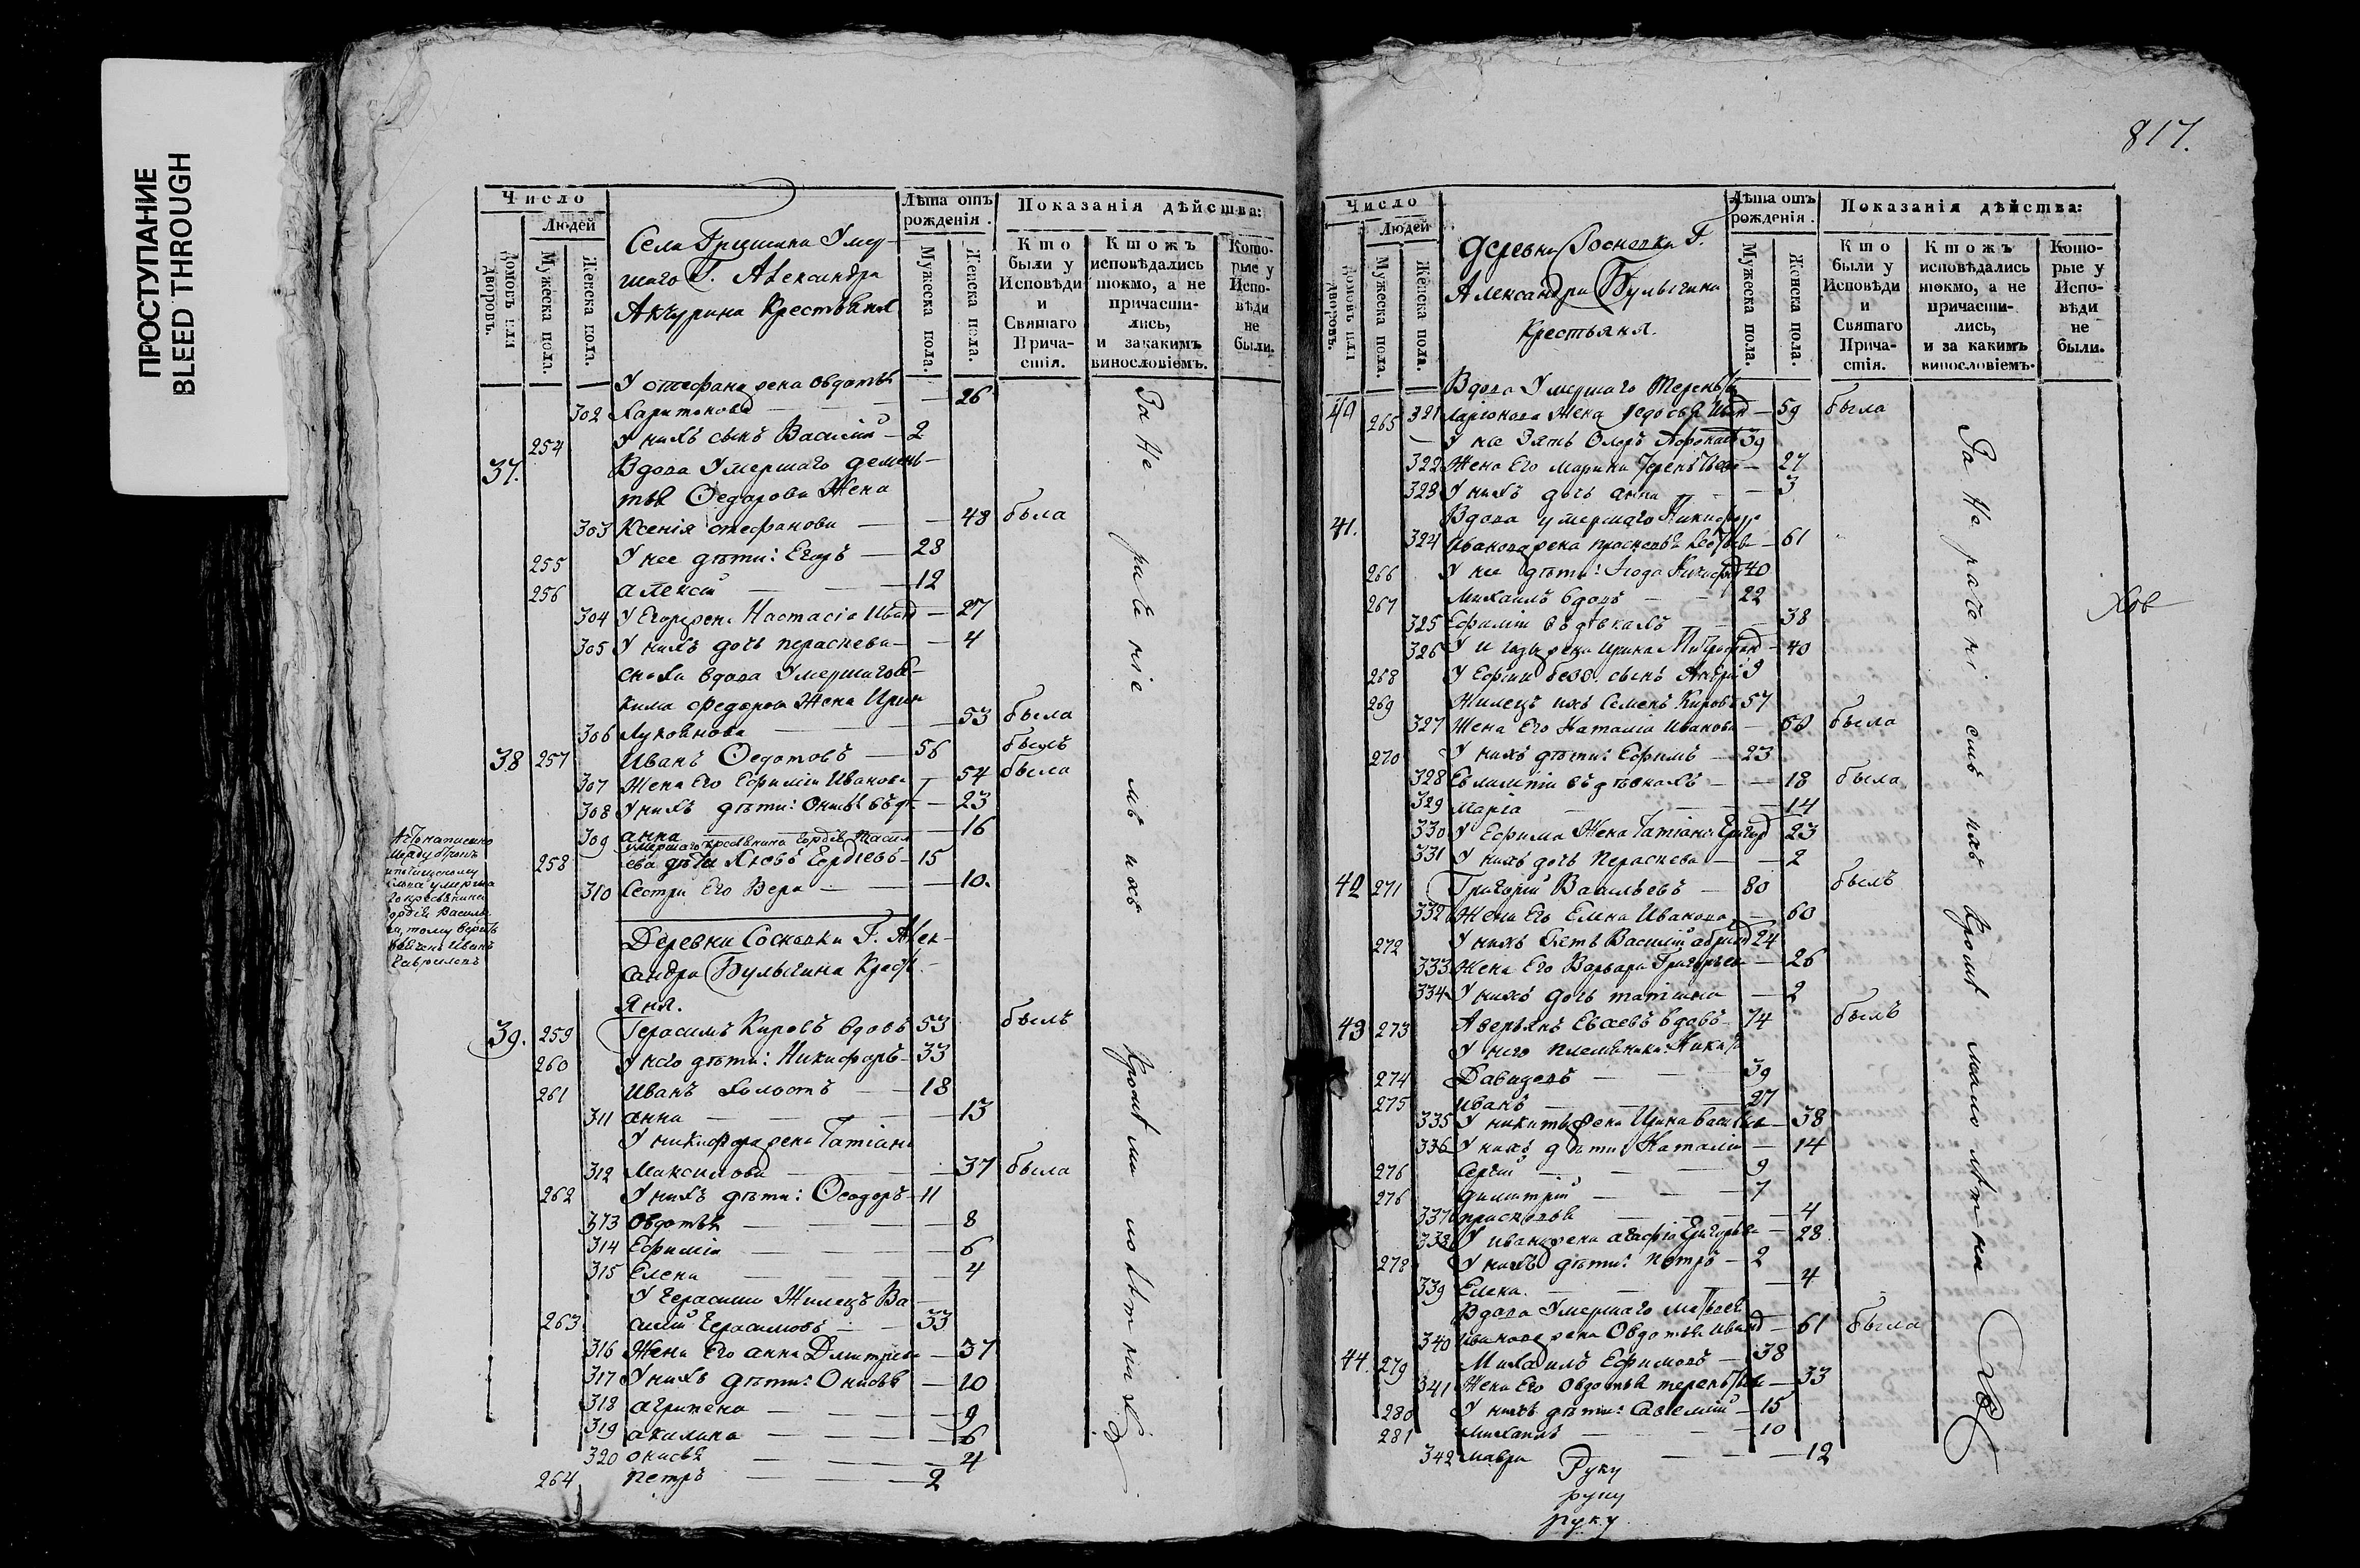 ПРОСТУПАНИЕ
BLEED THROUGH
Число
Людей
Домовъ или дворовъ.
Мужеска пола.
Женска пола.
Лѣта отъ рожденія.
Мужеска пола.
Женска пола.
Показанія дѣйства:
Кто были у Исповѣди и Святаго Причастія.
Ктожъ исповѣдались токмо, а не причастились, и закакимъ винословіемъ.
Которые у Исповѣди не были.
Села Гришина Умер-
шаго Г. Александра
Акчурина Крестьяня
У стефана жена овдотья
302 Харитонова — 26
254 У нихъ сынъ Василій — 2
37. Вдова Умершаго демень-
тья Федорова Жена
303 Ксенія стефанова — 48 была
255 У нее дѣти: Егоръ — 28
256 алексий — 12
304 У Егора жена Настасіа Иван — 27
305 У нихъ дочь параскева — 4
сноха вдова Умершаго
кима федорова Жена Ирин
306 Луковнова — 53 была
38 257 Иванъ Федотовъ — 56 былъ
307 Жена Его Ефимия Иванова — 54 была
308 У нихъ дѣти: — 23
309 анна — 16
258 дѣти Яковъ Гордѣевъ — 15
310 Сестра Его Вера — 10.
Деревни Сосновки Г. Алек-
сандра Булыгина Кресть-
яня.
39. 259 Герасимъ Кировъ вдовъ 53 былъ
260 У него дѣти: Никифоръ — 33
261 Иванъ холостъ — 18
311 анна — 13
У никифора жена Татіана
312 Максимова — 37 была
262 У нихъ дѣти: Феодоръ — 11
313 Овдотья — 8
314 Ефимія — 6
315 Елена — 4
У Герасима Жилецъ Ва
263 силій Герасимовъ — 33
316 Жена Его анна Дмитриева — 37
317 У нихъ дѣти: Онисья — 10
318 агрипена — 9
319 акилина — 6
320 онисья — 4
264 Петръ — 2
За Не
раче ніе
мъ ихъ
Кромѣ ма
лолѣтних
817.
Число
Людей
Домовъ или дворовъ.
Мужеска пола.
Женска пола.
Лѣта отъ рожденія.
Мужеска пола.
Женска пола.
Показанія дѣйства:
Кто были у Исповѣди и Святаго Причастія.
Ктожъ исповѣдались токмо, а не причастились, и за какимъ винословіемъ.
Которые у Исповѣди не были.
деревни Сосновки Г.
Александра Булыгина
Крестьяня.
Вдова Умершаго Терентья
40 265 321 Ларіонова Жена Федосья Иван — 59 была
У нее Зять 39
322 Жена Его Марина Терентьева — 27
323 У нихъ дочь анна — 3
Вдова умершаго Никифора
41. 324 Иванова жена прасковья — 61
266 У нее дѣти: 40
267 Михаилъ вдовъ — 22
325 Ефимія въ дѣвкахъ — 38
326 жена ирина Митрофан — 40
268 У Ефимии сынъ 9
269 Жилецъ ихъ Семенъ Кировъ 57
327 Жена Его Наталіа Иванова — 60 была
270 У нихъ дѣти: Ефимъ — 23
328 въ дѣвкахъ — 18 была
329 Марія — 14
330 У Ефима Жена Татіана Григор 23
331 У нихъ дочь Параскева — 2
42 271 Григорій Васильевъ — 80 былъ
332 Жена Его Елена Иванова — 60
272 У нихъ зять Василій 24
333 Жена Его Варвара Григорьева — 26
334 У нихъ дочь татіана — 2
43 273 Аверьянъ Евсеевъ вдовъ 74 былъ
У него племянники: Никита
274 Давидовъ — 39
275 Иванъ — 27
335 У никиты жена Ирина Василье — 38
336 У нихъ дѣти Наталіа — 14
276 Сергій — 9
276 Димитрій — 7
337 прасковья — 4
338 У ивана жена агафіа Григорьева — 28
278 У нихъ дѣти: петръ — 2
339 Елена — 4
Вдова Умершаго Матвея
340 Иванова жена Овдотья Иванов — 61 была
44. 279 Михаилъ Ефимовъ — 38
341 Жена Его Овдотья терентьева — 33
280 У нихъ дѣти: Савелий — 15
281 Михаилъ — 10
342 Мавра — 12
За Не раче ні
емъ ихъ
Кромѣ малолѣтни
Руку
руку
руку